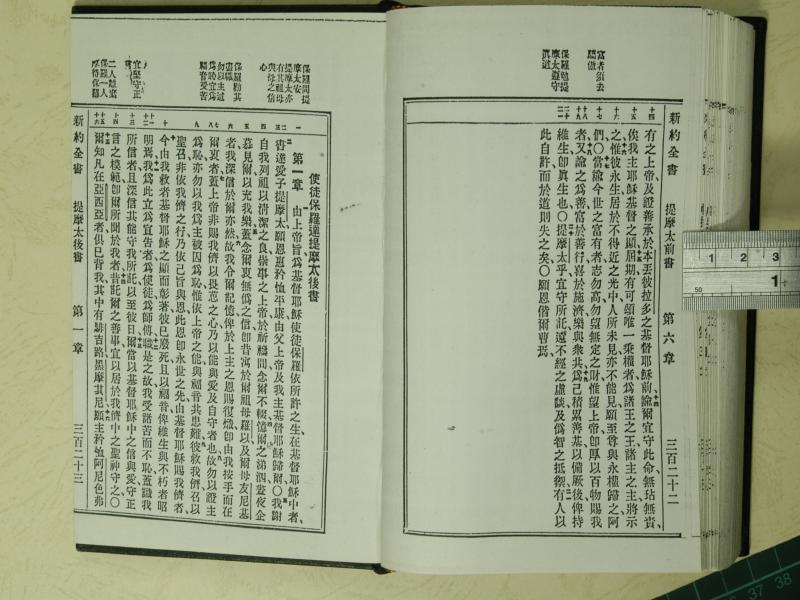 新約全書 提摩太前書 第六章 三百二十二
富者須去驕傲
保羅勉提摩太遵守眞道
有之上帝、及證善承於本丟彼拉多之基督耶穌前、諭爾宜守此命、無玷無責、
俟我主耶穌基督之顯、屆期有可頌唯一乘權者、為諸王之王、諸主之主、將示
之、惟彼永生、居於不得近之光中、人所未見、亦不能見、願至尊與永權歸之、阿
們〇當諭今世之富有者、志勿高、勿望無定之財、惟望上帝、即厚以百物賜我
者、又諭之為善、富於善行、喜於施濟、樂與衆共、為己積累善基、以備厥後、俾持
維生、即眞生也〇提摩太乎、宜守所託、遠不經之虛談、及偽智之抵禦、有人以
此自許、而於道則失之矣〇願恩偕爾曹焉、
使徒保羅達提摩太後書
第一章
保羅問提摩太安
有其祖母與母之信心
保羅勸其
勿以主道為恥宜為福音受苦
宜堅守正
由上帝旨、為基督耶穌使徒保羅、依所許之生、在基督耶穌中者、
書達愛子提摩太、願恩惠矜恤平康、由父上帝、及我主基督耶穌歸爾〇我謝
自我列祖、以清潔之良、崇事之上帝、於祈禱間念爾不輟、憶爾之涕泗、晝夜企
慕見爾、以充我樂、蓋念爾衷無偽之信、即昔寓於爾祖母羅以、及爾母友尼基
者、我深信於爾亦然、故我令爾記憶、俾於上主之恩賜復熾、即由我按手而在
爾衷者、蓋上帝非賜我儕以畏葸之心、乃以能與愛及自守者也、故勿以證主
為恥、亦勿以我為主被囚為恥、惟依上帝之能、與福音共患難、彼救我儕、召以
聖召、非依我儕之行、乃依己旨與恩、此恩即永世之先、由基督耶穌賜我儕者、
今由我救者基督耶穌之顯而彰著、彼已廢死、且以福音俾維生與不朽者昭
明焉、我為此立為宣告者、為使徒、為師傅、職是之故、我受諸苦而不恥、蓋識我
所信者、且深信其能守我所託、以至彼日、爾當以基督耶穌中之信與愛、守正
言之模範、即爾所聞於我者、昔託爾之善事、宜以居於我儕中之聖神守之〇
爾知凡在亞西亞者、俱已背我、其中有腓吉路黑摩其尼、願主矜恤阿尼色弗
新約全書 提摩太後書 第一章 三百二十三
1 2 3
1
50
36 37 38